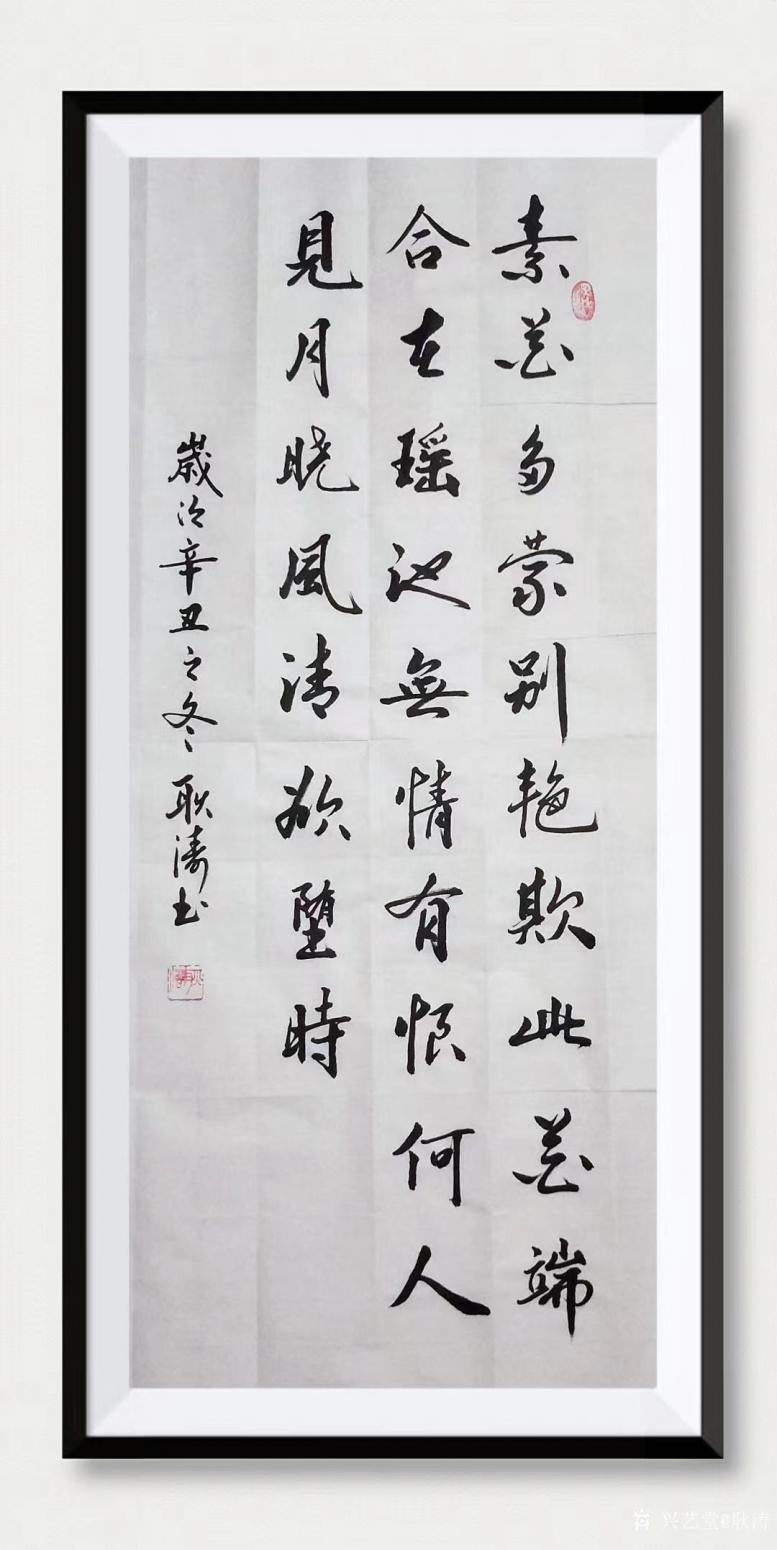 素花多蒙别艳欺此花端
合在瑶池無情有恨何人
見月晓風清欲堕時
歲次辛丑之冬耿濤书
兴艺堂@耿涛